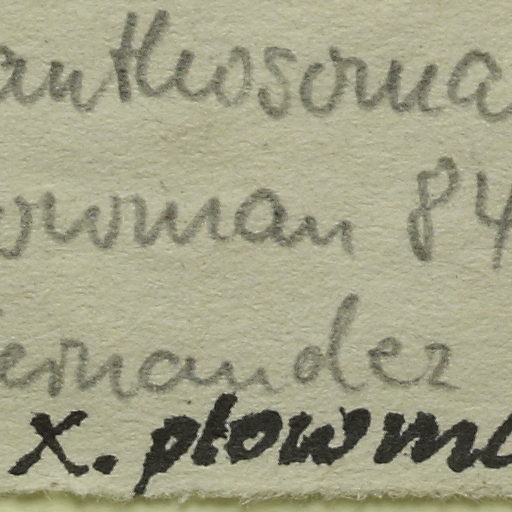 anthosoma
owman 84
ernandez
x. plowma